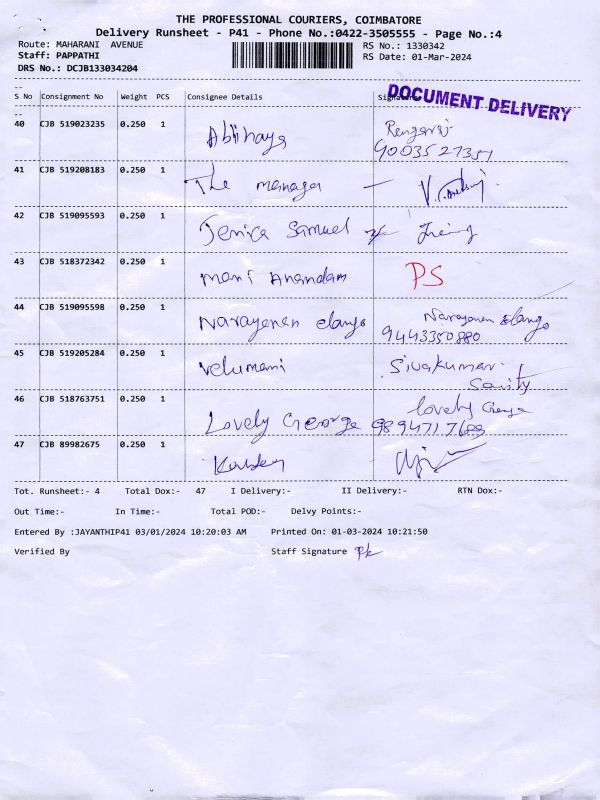 THE PROFESSIONAL COURIERS, COIMBATORE
Delivery Runsheet - P41 - Phone No.:0422-3505555 - Page No.:4
Route: MAHARANI AVENUE RS No.: 1330342
Staff: PAPPATHI RS Date: 01-Mar-2024
DRS No.: DCJB133034204
DOCUMENT DELIVERY
--
S No Consignment No Weight PCS Consignee Details Signature
--
40 CJB 519023235 0.250 1 Abinaya
9003527351
41 CJB 519208183 0.250 1 The manager -
42 CJB 519095593 0.250 1 Jenica Samuel
43 CJB 518372342 0.250 1 mani Anandam PS
44 CJB 519095598 0.250 1 Narayanan elango Narayanan Elango
9443350880
45 CJB 519205284 0.250 1 velumani Sivakumar
46 CJB 518763751 0.250 1 Lovely George lovely George
9894717689
47 CJB 89982675 0.250 1
Tot. Runsheet:- 4 Total Dox:- 47 I Delivery:- II Delivery:- RTN Dox:-
Out Time:- In Time:- Total POD:- Delvy Points:-
Entered By :JAYANTHIP41 03/01/2024 10:20:03 AM Printed On: 01-03-2024 10:21:50
Verified By Staff Signature